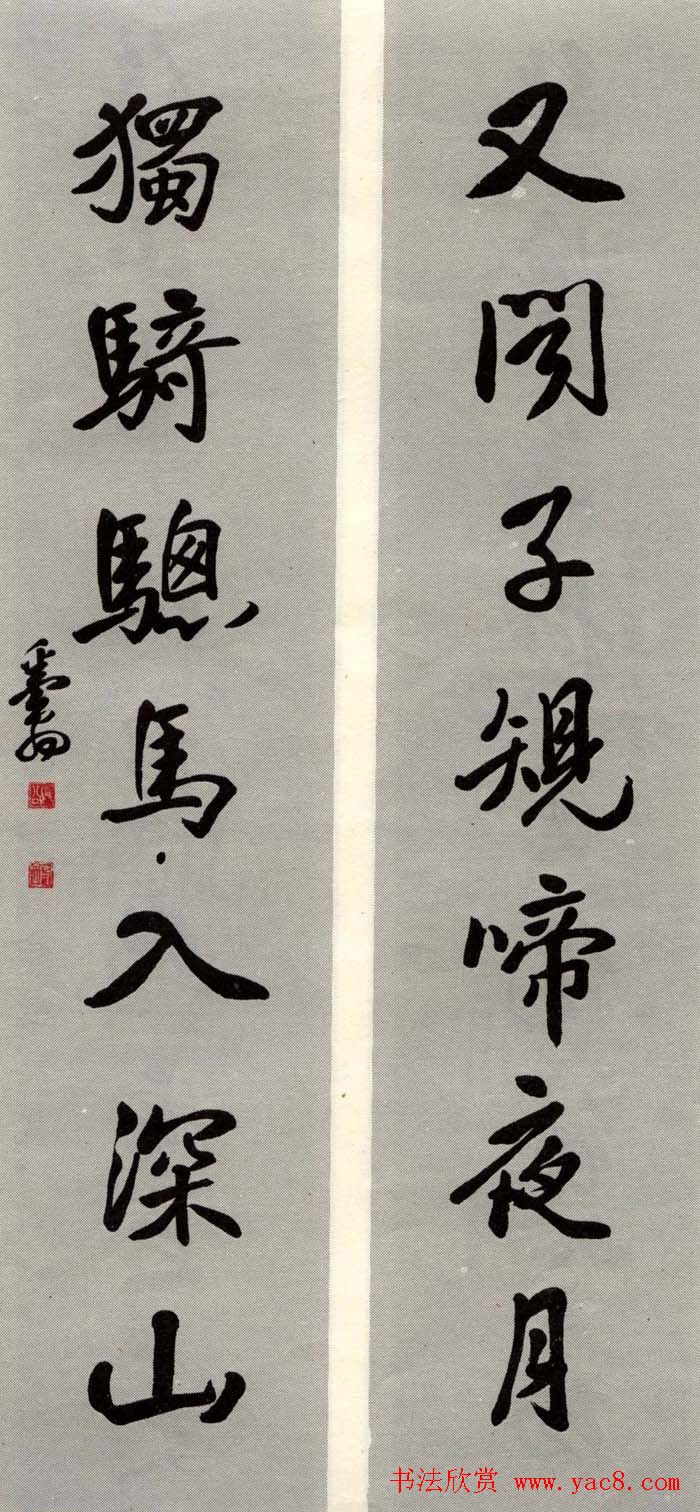 又聞子規啼夜月
獨騎驄馬入深山
书法欣赏 www.yac8.com